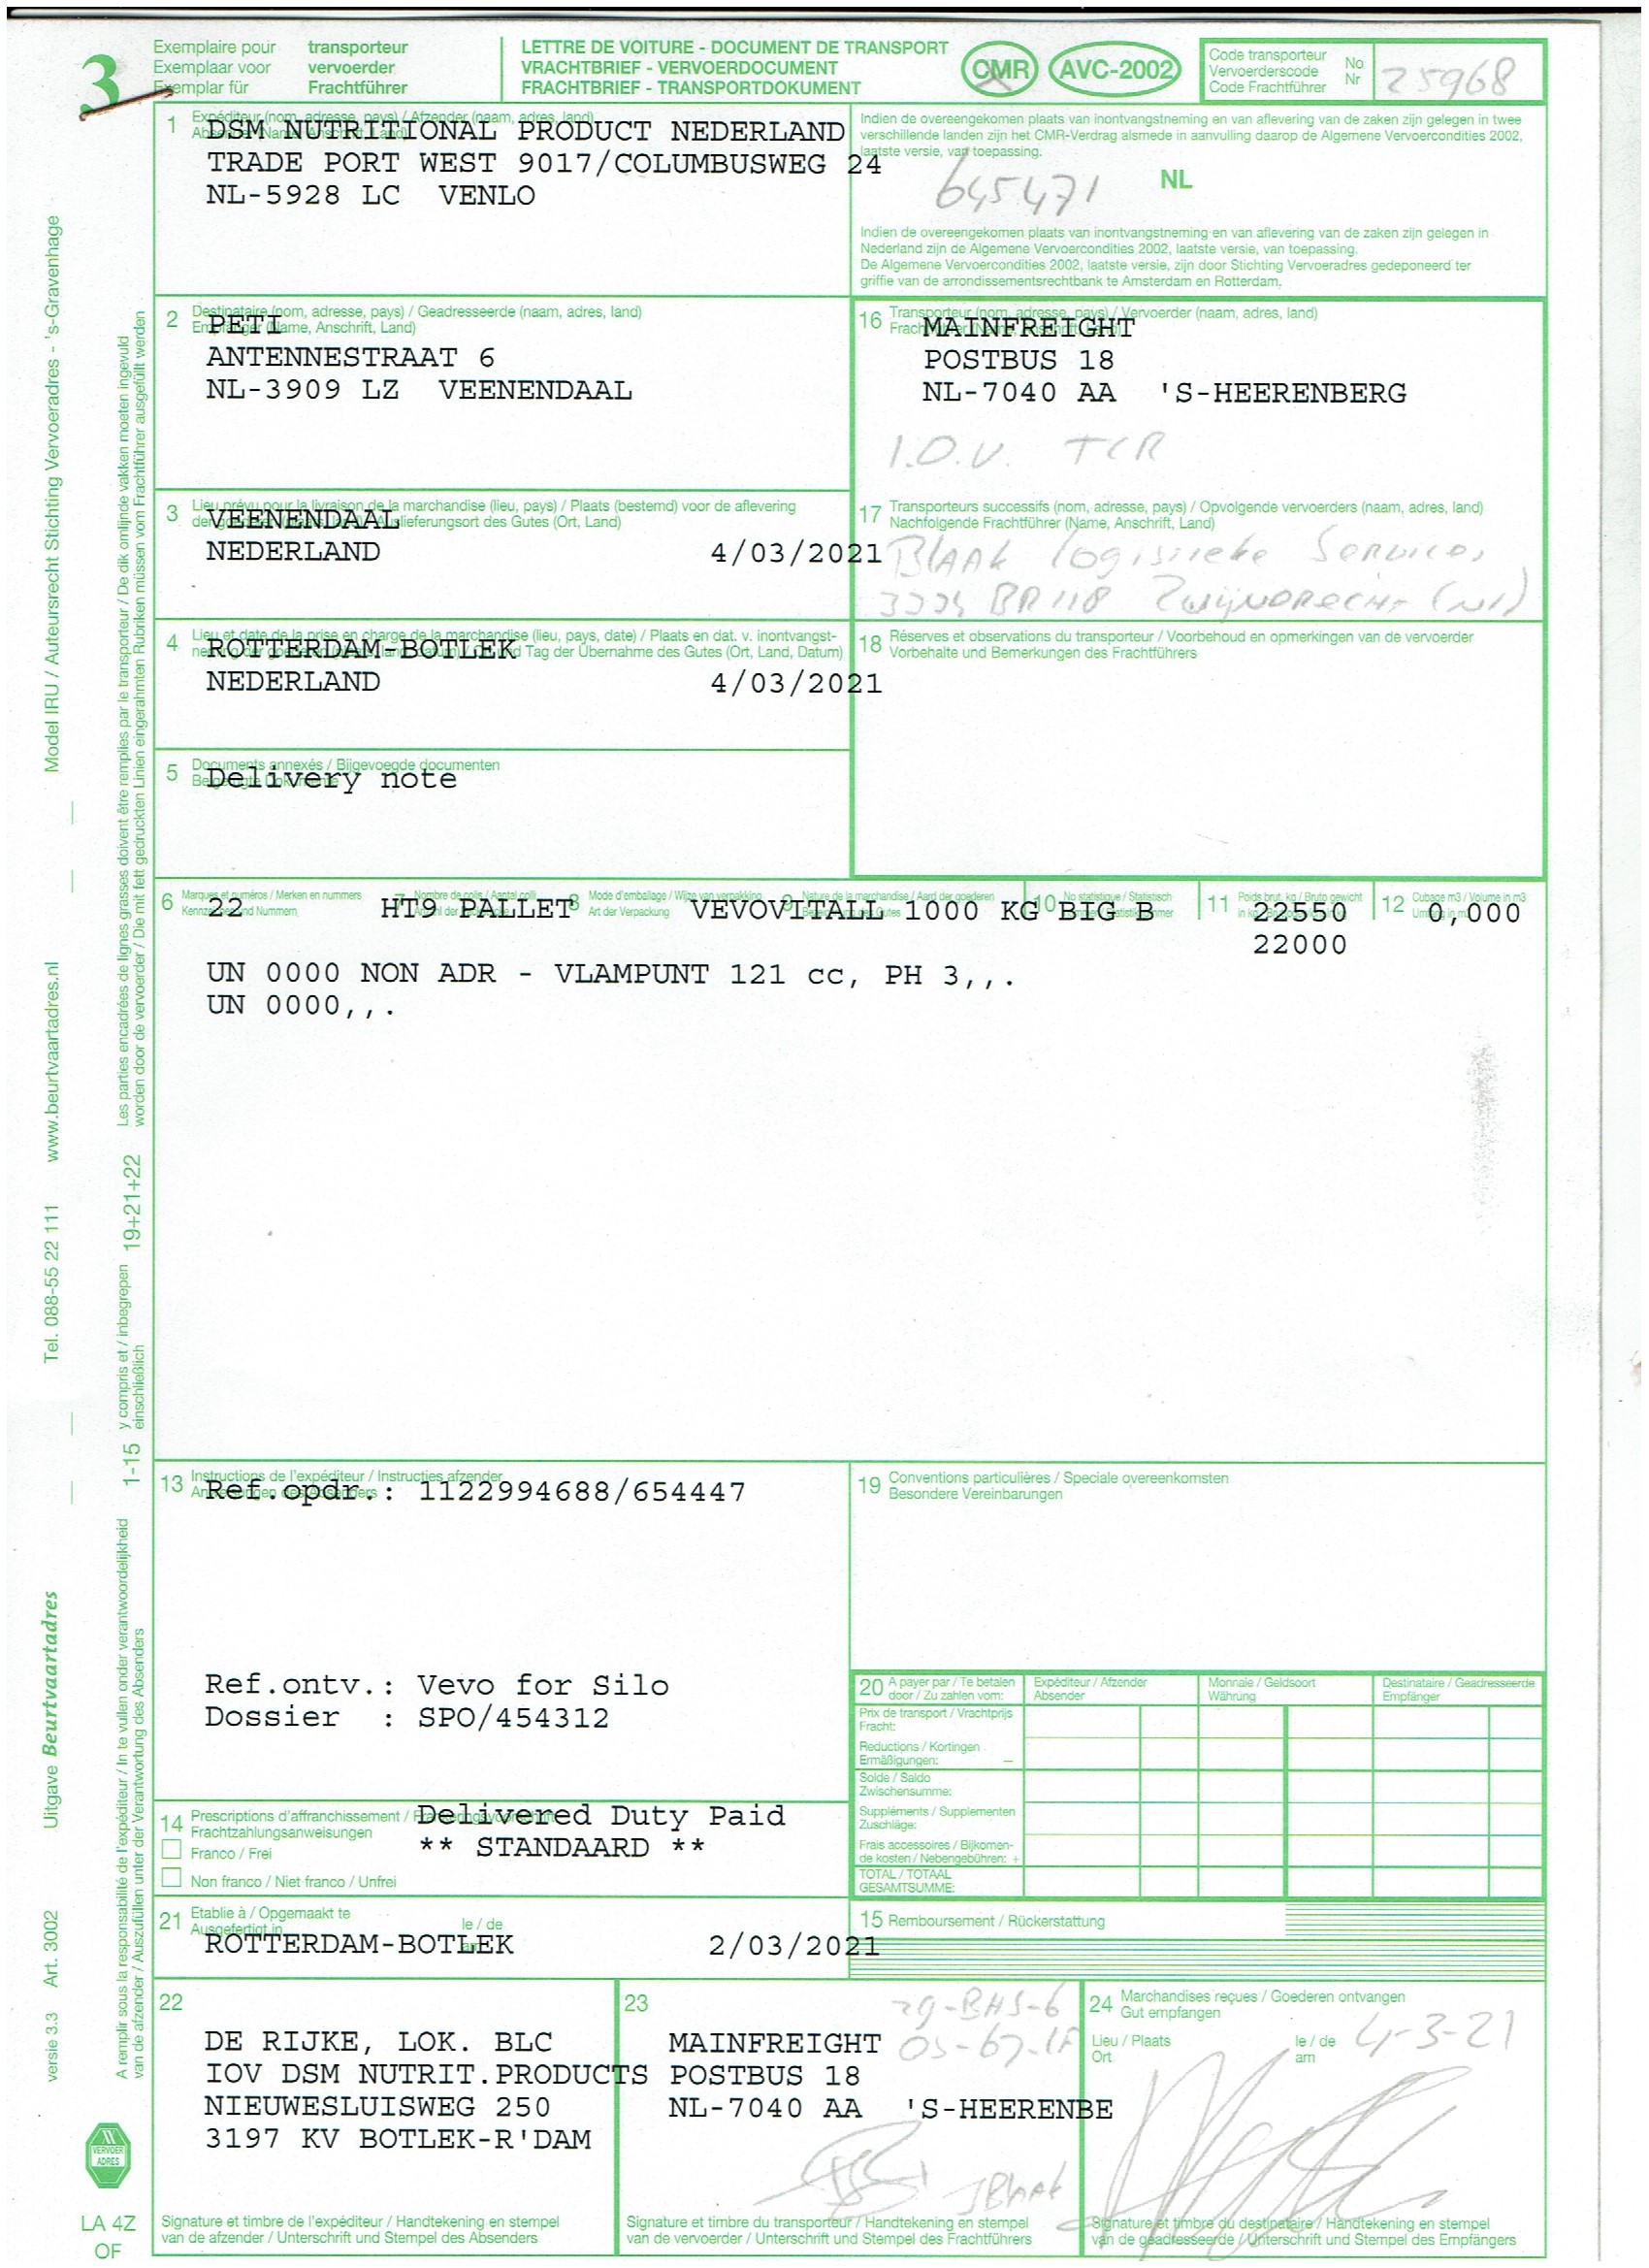 3
Exemplaire pour transporteur
Exemplaar voor vervoerder
Exemplar für Frachtführer
LETTRE DE VOITURE - DOCUMENT DE TRANSPORT
VRACHTBRIEF - VERVOERDOCUMENT
FRACHTBRIEF - TRANSPORTDOKUMENT
CMR AVC-2002
Code transporteur
Vervoerderscode
Code Frachtführer
No
Nr
25968
1 Expéditeur (nom, adresse, pays) / Afzender (naam, adres, land)
DSM NUTRITIONAL PRODUCT NEDERLAND
TRADE PORT WEST 9017/COLUMBUSWEG 24
NL-5928 LC VENLO
Indien de overeengekomen plaats van inontvangstneming en van aflevering van de zaken zijn gelegen in twee
verschillende landen zijn het CMR-Verdrag alsmede in aanvulling daarop de Algemene Vervoercondities 2002,
laatste versie, van toepassing.
645471 NL
Indien de overeengekomen plaats van inontvangstneming en van aflevering van de zaken zijn gelegen in
Nederland zijn de Algemene Vervoercondities 2002, laatste versie, van toepassing.
De Algemene Vervoercondities 2002, laatste versie, zijn door Stichting Vervoeradres gedeponeerd ter
griffie van de arrondissementsrechtbank te Amsterdam en Rotterdam.
2 Destinataire (nom, adresse, pays) / Geadresseerde (naam, adres, land)
Empfänger (Name, Anschrift, Land)
PETI
ANTENNESTRAAT 6
NL-3909 LZ VEENENDAAL
16 Transporteur (nom, adresse, pays) / Vervoerder (naam, adres, land)
MAINFREIGHT
POSTBUS 18
NL-7040 AA 'S-HEERENBERG
I.O.V. TCR
3 Lieu prévu pour la livraison de la marchandise (lieu, pays) / Plaats (bestemd) voor de aflevering
der goederen / Auslieferungsort des Gutes (Ort, Land)
VEENENDAAL
NEDERLAND 4/03/2021
17 Transporteurs successifs (nom, adresse, pays) / Opvolgende vervoerders (naam, adres, land)
Nachfolgende Frachtführer (Name, Anschrift, Land)
Blaak logistieke Services
Zwijndrecht (Nl)
4 Lieu et date de la prise en charge de la marchandise (lieu, pays, date) / Plaats en dat. v. inontvangst-
Tag der Übernahme des Gutes (Ort, Land, Datum)
ROTTERDAM-BOTLEK
NEDERLAND 4/03/2021
18 Réserves et observations du transporteur / Voorbehoud en opmerkingen van de vervoerder
Vorbehalte und Bemerkungen des Frachtführers
5 Documents annexés / Bijgevoegde documenten
Delivery note
6 Marques et numéros / Merken en nummers
Kennzeichen und Nummern
7 Nombre de colis / Aantal colli
8 Mode d'emballage / Wijze van verpakking
Art der Verpackung
9 Nature de la marchandise / Aard der goederen
10 No statistique / Statistisch
11 Poids brut, kg / Bruto gewicht
12 Cubage m3 / Volume in m3
22 HT9 PALLET VEVOVITALL 1000 KG BIG B 22550 0,000
22000
UN 0000 NON ADR - VLAMPUNT 121 cc, PH 3,,.
UN 0000,,.
13 Instructions de l'expéditeur / Instructies afzender
Ref.opdr.: 1122994688/654447
Ref.ontv.: Vevo for Silo
Dossier : SPO/454312
19 Conventions particulières / Speciale overeenkomsten
Besondere Vereinbarungen
20 A payer par / Te betalen
door / Zu zahlen vom:
Expéditeur / Afzender
Absender
Monnaie / Geldsoort
Währung
Destinataire / Geadresseerde
Empfänger
Prix de transport / Vrachtprijs
Fracht:
Reductions / Kortingen
Ermäßigungen: –
Solde / Saldo
Zwischensumme:
Suppléments / Supplementen
Zuschläge:
Frais accessoires / Bijkomen-
de kosten / Nebengebühren: +
TOTAL / TOTAAL
GESAMTSUMME:
14 Prescriptions d'affranchissement /
Frachtzahlungsanweisungen
Franco / Frei
Non franco / Niet franco / Unfrei
Delivered Duty Paid
** STANDAARD **
21 Etablie à / Opgemaakt te le / de
Ausgefertigt in
ROTTERDAM-BOTLEK 2/03/2021
15 Remboursement / Rückerstattung
22
DE RIJKE, LOK. BLC
IOV DSM NUTRIT.PRODUCTS
NIEUWESLUISWEG 250
3197 KV BOTLEK-R'DAM
Signature et timbre de l'expéditeur / Handtekening en stempel
van de afzender / Unterschrift und Stempel des Absenders
23
29-BHS-6
MAINFREIGHT
POSTBUS 18
NL-7040 AA 'S-HEERENBE
JBlaak
Signature et timbre du transporteur / Handtekening en stempel
van de vervoerder / Unterschrift und Stempel des Frachtführers
24 Marchandises reçues / Goederen ontvangen
Gut empfangen
Lieu / Plaats
Ort
le / de
am
4-3-21
Signature et timbre du destinataire / Handtekening en stempel
van de geadresseerde / Unterschrift und Stempel des Empfängers
Model IRU / Auteursrecht Stichting Vervoeradres - 's-Gravenhage
www.beurtvaartadres.nl
Tel. 088-55 22 111
Uitgave Beurtvaartadres
Art. 3002
versie 3.3
Les parties encadrées de lignes grasses doivent être remplies par le transporteur / De dik omlijnde vakken moeten ingevuld
worden door de vervoerder / Die mit fett gedruckten Linien eingerahmten Rubriken müssen vom Frachtführer ausgefüllt werden
19+21+22
y compris et / inbegrepen
einschließlich
1-15
A remplir sous la responsabilité de l'expéditeur / In te vullen onder verantwoordelijkheid
van de afzender / Auszufüllen unter der Verantwortung des Absenders
VERVOER
ADRES
LA 4Z
OF